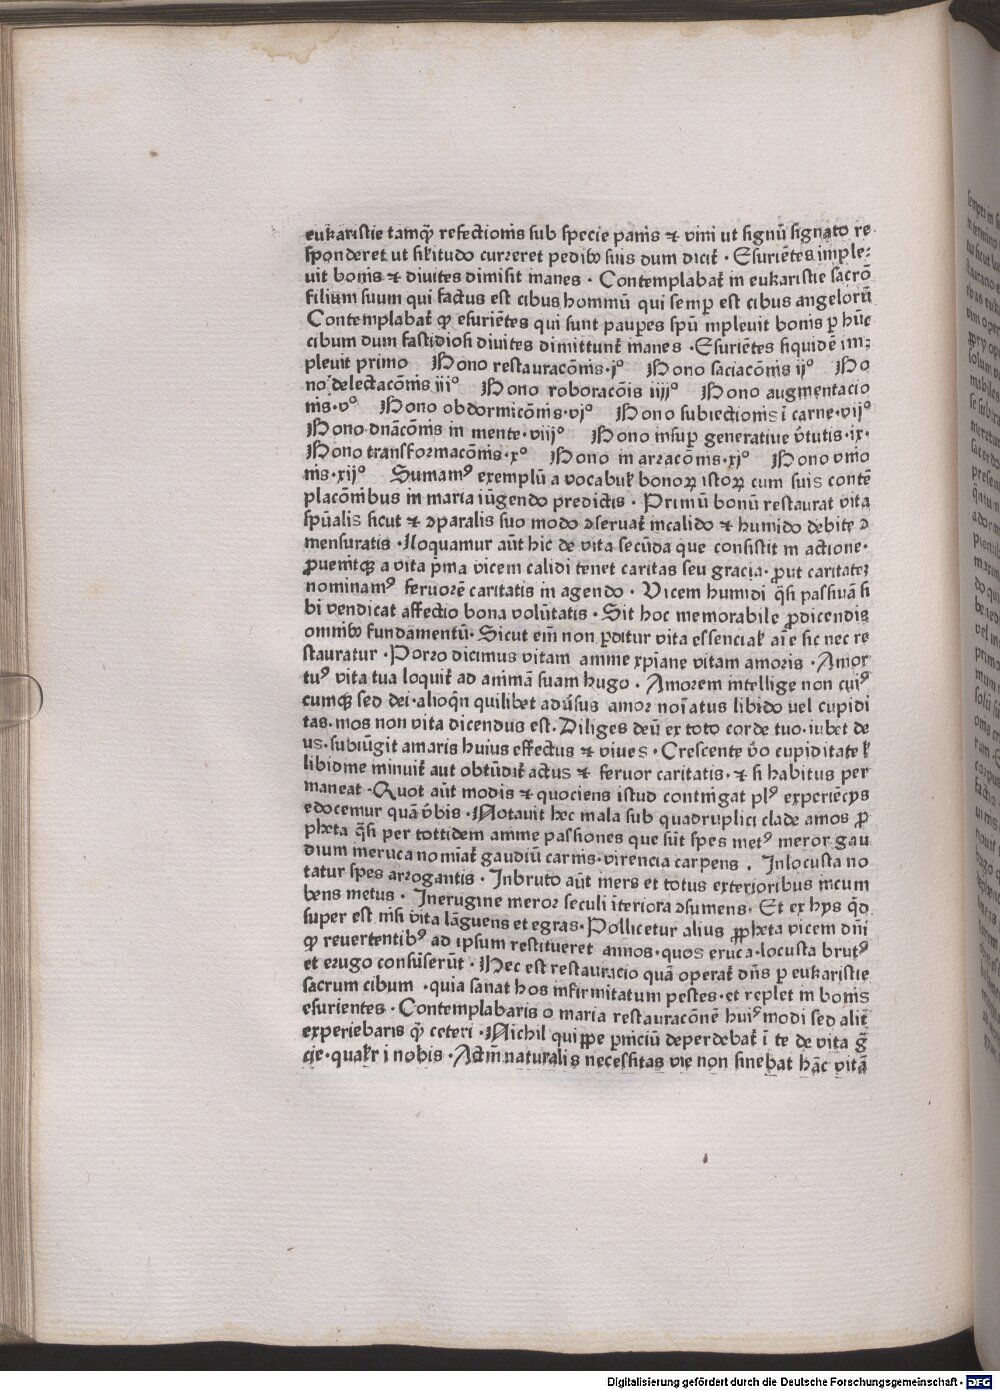 eukaristie tamq̄ʒ refectionis sub specie panis ⁊ vini ut signū signato re
sponderet ut silitudo curreret pedibꝫ suis dum dicit · Esuriētes imple⸗
uit bonis ⁊ diuites dimisit inanes · Contemplabat̄ in eukaristie sacrō
filium suum qui factus est cibus hominū qui semꝑ est cibus angelorū
Contemplabat̄ ꝙ esuriētes qui sunt pauꝑes spū impleuit bonis ꝑ hūc
cibum dum fastidiosi diuites dimittunt̄ inanes · Esuriētes siquidē im⸗
pleuit primo Bono restauracōnis·jº Bono saciacōnis ijº Bo
no delectacōnis iijº Bono roboracōis iiijº Bono augmentacio
nis·vº Bono obdormicōnis·vjº Bono subiectionis ī carne·vijº
Bono dnācōnis in mente·viijº Bono insuꝑ generatiue v̄tutis·ix·
Bono transformacōnis·xº Bono in arracōnis·xjº Bono vnio
nis·xijº Sumamꝰ exemplū a vocabul̄ bonoꝝ istoꝝ cum suis contē
placōnibus in maria iūgendo predictis · Primū bonū restaurat vita
spūalis sicut ⁊ ꝯparalis suo modo ꝯseruat̄ incalido ⁊ humido debite ꝯ
mensuratis · Loquamur aūt hic de vita secūda que consistit in actione·
ꝓuenitqꝫ a vita p̄ma vicem calidi tenet caritas seu gracia· ꝓut caritatez
nominamꝰ feruorē caritatis in agendo · Vicem humidi q̄si passiuā si
bi vendicat affectio bona volūtatis · Sit hoc memorabile ꝓdicendis
omnibꝫ fundamentū· Sicut em̄ non ꝑditur vita essencial̄ aīe sic nec re
stauratur · Porro dicimus vitam anime xp̄iane vitam amoris · Amor
tuꝰ vita tua loquit̄ ad animā suam hugo · Amorem intellige non cuiꝰ
cumqꝫ sed dei·alioqn̄ quilibet adūsus amor noīatus libido uel cupidi
tas·mos non vita dicendus est· Diliges deū ex toto corde tuo·iubet de
us·subiūgit amaris huius effectus ⁊ viues · Crescente v̄o cupiditate l̄
libidine minuit̄ aut obtūdit̄ actus ⁊ feruor caritatis·⁊ si habitus per
maneat · Quot aūt modis ⁊ quociens istud contingat plꝰ experiēcijs
edocemur quā v̄bis · Notauit hec mala sub quadruplici clade amos ꝓ
pheta q̄si per tottidem anime passiones que sūt spes metꝰ meror gau
dium meruca nomīat̄ gaudiū carnis·virencia carpens . Inlocusta no
tatur spes arrogantis · Inbruto aūt iners et totus exterioribus incum
bens metus · Inerugine meror seculi īteriora ꝯsumens· Et ex hijs qd̄
super est nisi vita lāguens et egras· Pollicetur alius ꝓpheta vicem dn̄i
ꝙ reuertentibꝰ ad ipsum restitueret annos·quos eruca·locusta brutꝰ
et erugo consūserūt · Hec est restauracio quā operat̄ dn̄s ꝑ eukaristie
sacrum cibum ·quia sanat hos infirmitatum pestes·et replet in bonis
esurientes · Contemplabaris o maria restauracōnē huiꝰmodi sed alit̄
experiebaris q̄ʒ ceteri · Nichil quippe ꝑniciū deperdebat̄ ī te de vita ḡ
cie·qualr̄ i nobis · Actm̄ naturalis necessitas vie non sinebat hāc vitā
Digitalisierung gefördert durch die Deutsche Forschungsgemeinschaft · DFG